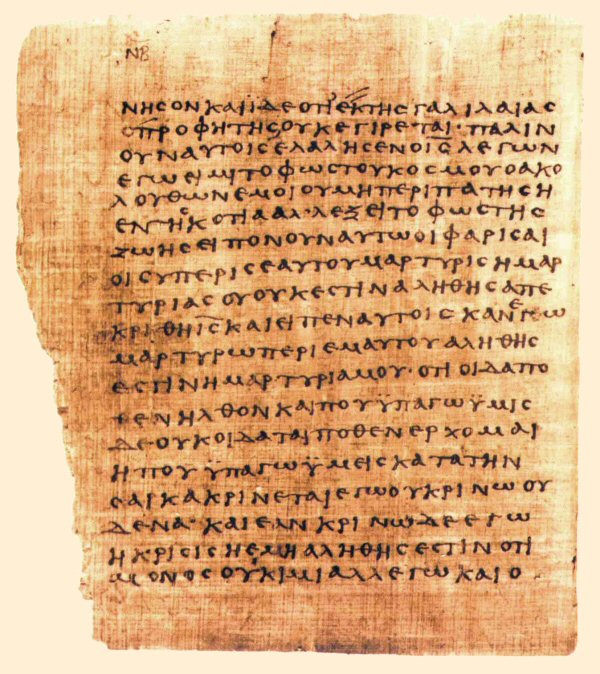 Ν̅Β̅
ΝΗϹΟΝ ΚΑΙ ΪΔΕ ΟΤΙ ΕΚ ΤΗϹ ΓΑΛΙΛΑΙΑϹ
Ο ΠΡΟΦΗΤΗϹ ΟΥΚ ΕΓΙΡΕΤΑΙ· ΠΑΛΙΝ
ΟΥΝ ΑΥΤΟΙϹ ΕΛΑΛΗϹΕΝ Ο Ι̅Ϲ̅ ΛΕΓΩΝ
ΕΓΩ ΕΙΜΙ ΤΟ ΦΩϹ ΤΟΥ ΚΟϹΜΟΥ Ο ΑΚΟ
ΛΟΥΘΩΝ ΕΜΟΙ ΟΥ ΜΗ ΠΕΡΙΠΑΤΗϹΗ
ΕΝ ΤΗ ϹΚΟΤΙΑ ΑΛΛ ΕΞΕΙ ΤΟ ΦΩϹ ΤΗϹ
ΖΩΗϹ ΕΙΠΟΝ ΟΥΝ ΑΥΤΩ ΟΙ ΦΑΡΙϹΑΙ
ΟΙ ϹΥ ΠΕΡΙ ϹΕΑΥΤΟΥ ΜΑΡΤΥΡΙϹ Η ΜΑΡ
ΤΥΡΙΑ ϹΟΥ ΟΥΚ ΕϹΤΙΝ ΑΛΗΘΗϹ ΑΠΕ
ΚΡΙΘΗ Ι̅Ϲ̅ ΚΑΙ ΕΙΠΕΝ ΑΥΤΟΙϹ ΚΑΝ ΕΓΩ
ΜΑΡΤΥΡΩ ΠΕΡΙ ΕΜΑΥΤΟΥ ΑΛΗΘΗϹ
ΕϹΤΙΝ Η ΜΑΡΤΥΡΙΑ ΜΟΥ· ΟΤΙ ΟΙΔΑ ΠΟ
ΘΕΝ ΗΛΘΟΝ ΚΑΙ ΠΟΥ ΫΠΑΓΩ ΫΜΙϹ
ΔΕ ΟΥΚ ΟΙΔΑΤΑΙ ΠΟΘΕΝ ΕΡΧΟΜΑΙ
Η ΠΟΥ ΫΠΑΓΩ ΫΜΕΙϹ ΚΑΤΑ ΤΗΝ
ϹΑΙΚΑ ΚΡΙΝΕΤΑΙ ΕΓΩ ΟΥ ΚΡΙΝΩ ΟΥ
ΔΕΝΑ· ΚΑΙ ΕΑΝ ΚΡΙΝΩ ΔΕ ΕΓΩ
Η ΚΡΙϹΙϹ Η ΕΜΗ ΑΛΗΘΗϹ ΕϹΤΙΝ ΟΤΙ
ΜΟΝΟϹ ΟΥΚ ΙΜΙ ΑΛΛ ΕΓΩ ΚΑΙ Ο